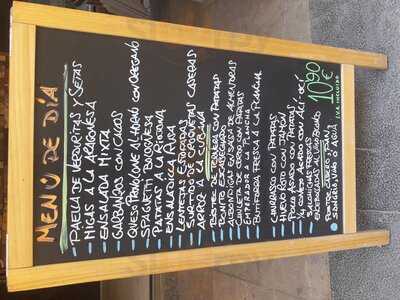 MENU DE DÍA
- PAELLA DE VERDURITAS Y SETAS
- MIGAS A LA ARAGONESA
- ENSALADA MIXTA
- GARBANZOS CON CALLOS
- QUESO PROVOLONE AL HORNO CON OREGANO
- SPAGUETTI BOLOGÑESA
- PATATAS A LA RIOJANA
- ENSALADILLA
- LENTEJAS ESTOFADAS
- SURTIDO DE CROQUETAS CASERAS
- ARROZ A LA CUBANA
- BISTEC DE TERNERA CON PATATAS
- BONITO ESCABECHADO
- ALBONDIGAS EN SALSA DE ALMENDRAS
- CHULETAS DE CON PATATAS
- EMPERADOR A LA PLANCHA
- BUTIFARRA FRESCA A LA PLANCHA
- CHURRASCO CON PATATAS
- HUEVOS ROTOS CON JAMON
- POLLO ASADO CON PATATAS
- 1/4 CONEJO ASADO CON ALI-OLI
POSTRE CASERO, PAN,
VINO O AGUA
10'90
IVA INCLUIDO